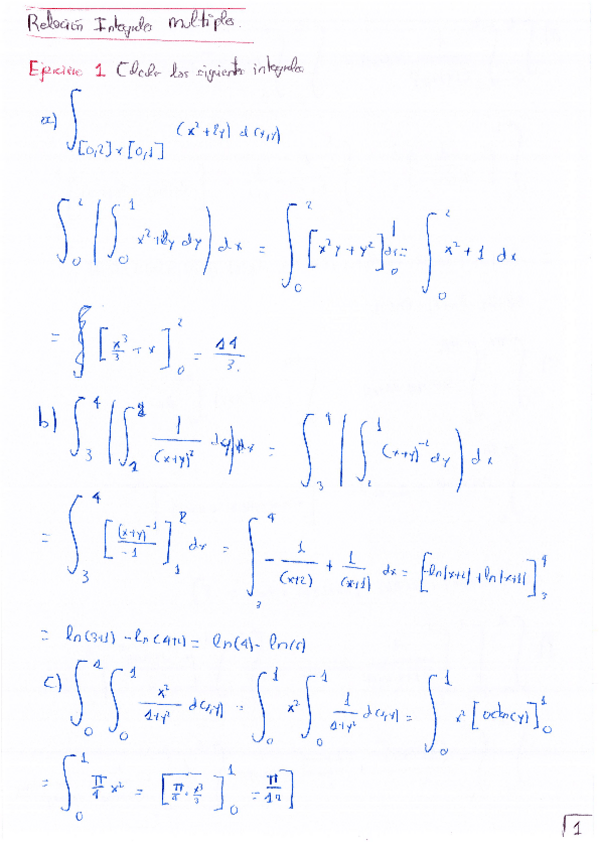 Relación Integrales multiples.
Ejercicio 1 Calcula las siguientes integrales
a) ∫_{[0,2]×[0,1]} (x²+2y) d(x,y)
∫_0^2 (∫_0^1 x²+2y dy) dx = ∫_0^2 [x²y + y²]_0^1 dx = ∫_0^2 x²+1 dx
= ∫ [x³/3 + x]_0^2 = 14/3.
b) ∫_3^4 (∫_1^2 1/(x+y)² dy) dx = ∫_3^4 (∫ (x+y)^{-2} dy) dx
= ∫_3^4 [(x+y)^{-1}/-1]_1^2 dx = ∫_3^4 -1/(x+2) + 1/(x+1) dx = [-ln|x+2| + ln|x+1|]_3^4
= ln(3+1) - ln(4+2) = ln(4) - ln(6)
c) ∫_0^1 ∫_0^1 x²/(1+y²) d(x,y) = ∫_0^1 x² ∫_0^1 1/(1+y²) d(x,y) = ∫_0^1 x² [arctan(y)]_0^1
= ∫_0^1 π/4 x² = [π/4 · x³/3]_0^1 = π/12]
1